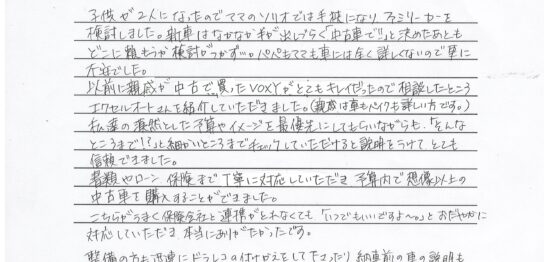 子供が2人になったのでママのソリオでは手狭になり ファミリーカーを
検討しました。新車はなかなか手が出しづらく「中古車で!!」と決めたあとも
どこに頼もうか検討がつかず…。パパもママも車には全く詳しくないので更に
不安でした。
以前に親戚が中古で買ったVOXYがとてもキレイだったので相談したところ
エクセルオートさんを紹介していただきました。(親戚は車もバイクも詳しい方です。)
私達の漠然とした予算やイメージを最優先にしてもらいながらも、「そんな
ところまで!?」と細かいところまでチェックしていただけると説明をうけて、とても
信頼できました。
書類やローン 保険まで丁寧に対応していただき 予算内で想像以上の
中古車を購入することができました。
こちらがうまく保険会社と連携がとれなくても「いつでもいいですよ〜。」とおだやかに
対応していただき 本当にありがたかったです。
整備の方も迅速にドラレコの付けかえをして下さったり 納車前の車の説明も